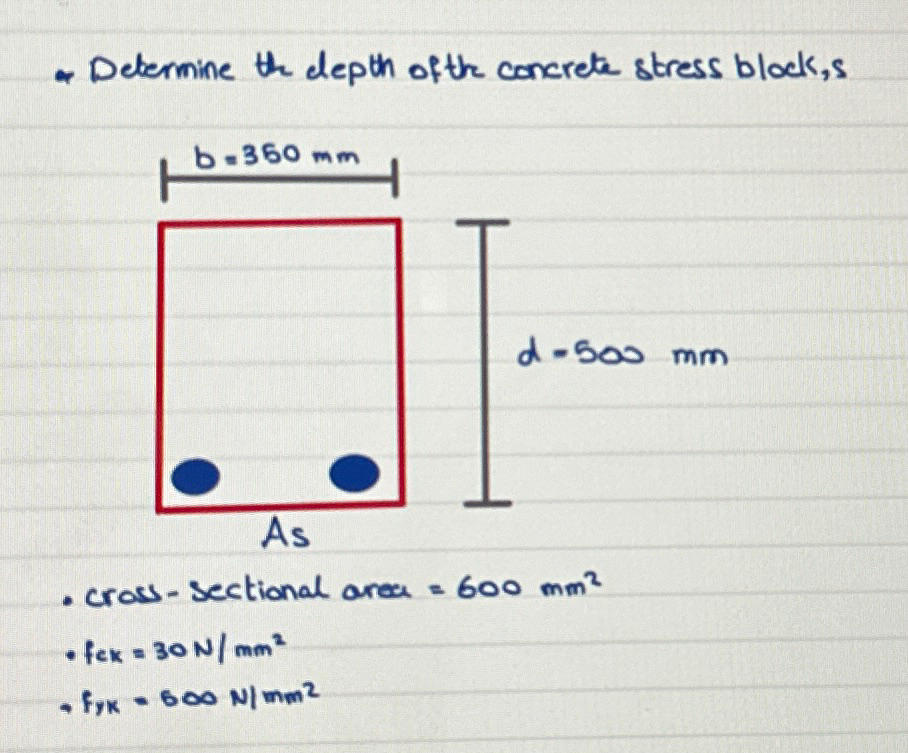 * Determine the depth of the concrete stress block, s
b = 350 mm
d = 500 mm
As
• cross-sectional area = 600 mm²
• fck = 30 N/mm²
• fyk = 500 N/mm²